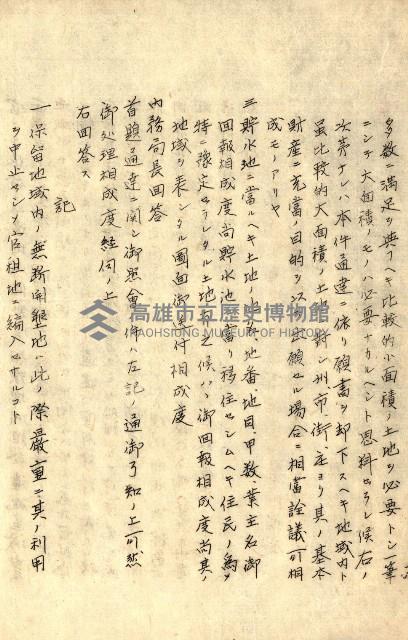 多数ニ満足ヲ與フヘキ比較的小面積ノ土地ヲ必要トシ一筆
ニシテ大面積ノモノハ必要ナカルヘシト思料セラレ候右ノ
次第ナレハ本件通達ニ依リ願書ヲ却下スヘキ地域内ト
雖比較的大面積ノ土地ニ對シ州、市、街、庄ヨリ其ノ基本
財産ニ充當ノ目的ヲ以テ出願セル場合ニ相當詮議可相
成モノナリヤ
三、貯水池ニ當ルヘキ土地ノ地番、地目、甲数、業主名御
回報相成度尚貯水池ニ移住セシムヘキ住民ノ為メ
特ニ豫定セラレタル土地有之候ハヽ御回報相成度尚其ノ
地域ヲ表シタル圖面御送付相成度
内務局長回答
首題通達ニ関シ御照會ノ件ハ左記ノ通御了知ノ上可然
御処理相成度経伺ノ上
右回答ス
記
一、保留地域内ノ無断開墾地ハ此ノ際嚴重ニ其ノ利用
ヲ中止セシメ官租地ニ編入セサルコト
高雄市立歷史博物館
KAOHSIUNG MUSEUM OF HISTORY